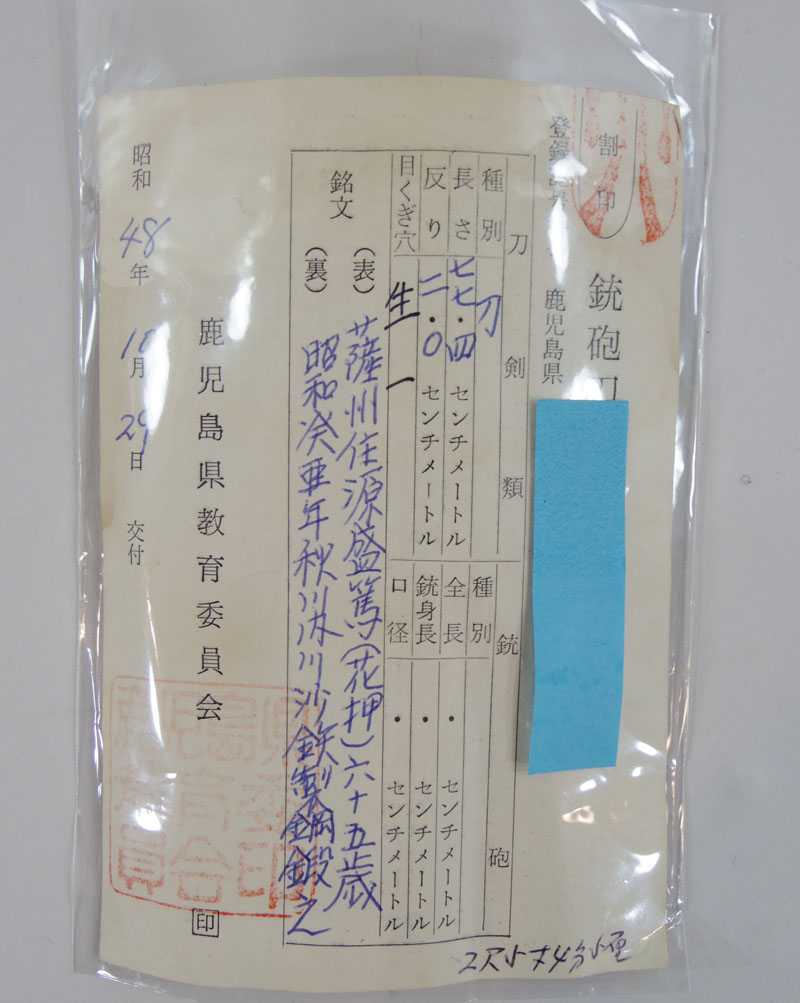 割印
銃砲刀
鹿児島県
刀剣類
銃砲
種別 刀
長さ 七七・四 センチメートル
反り 二・〇 センチメートル
目くぎ穴 生 一
種別
全長 ・ センチメートル
銃身長 ・ センチメートル
口径 ・ センチメートル
銘文
(表) 薩州住源盛篤(花押)六十五歳
(裏) 昭和癸丑年秋 沙鉄製鋼鍛之
鹿児島県教育委員会 印
昭和48年10月29日 交付